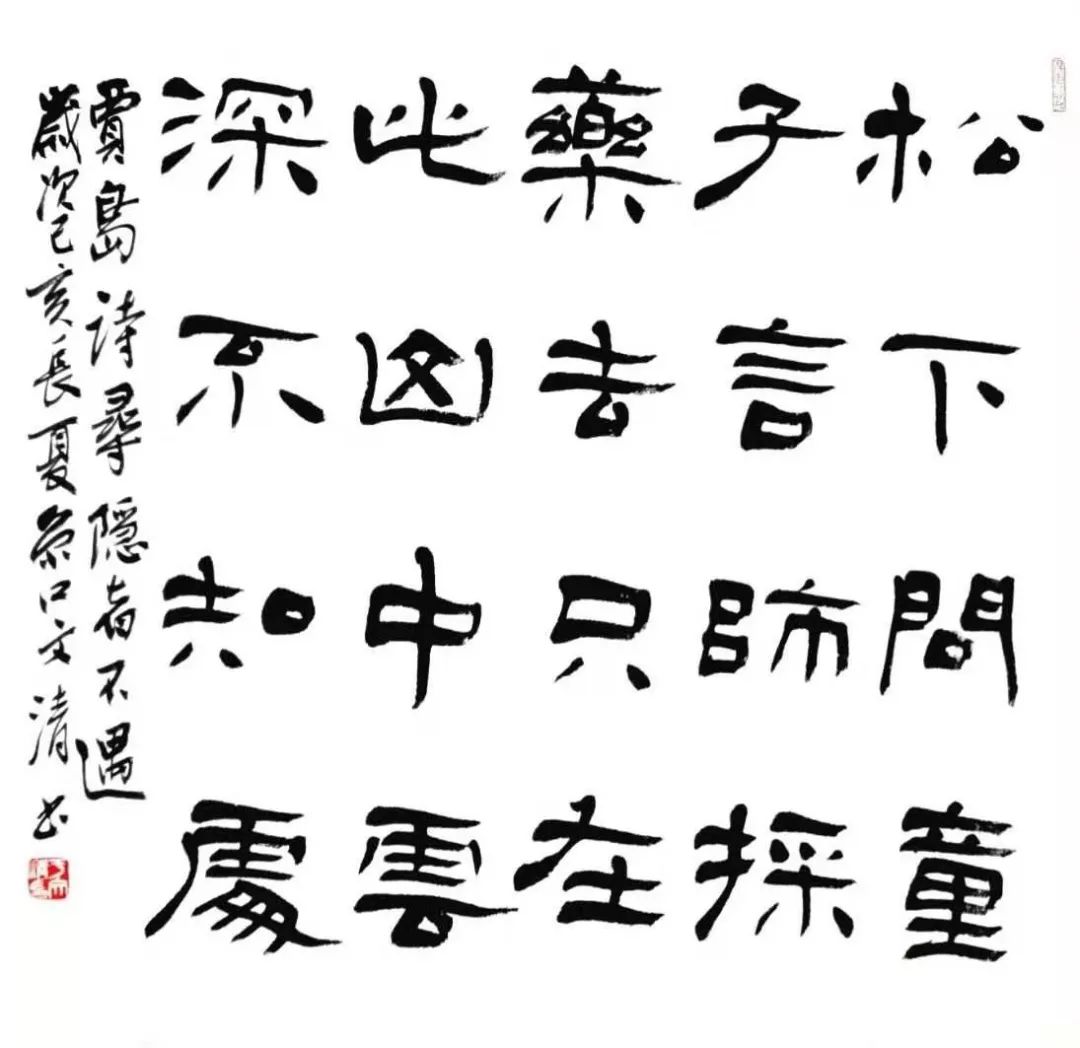 松下問童
子言師採
藥去只在
此山中雲
深不知處
賈島詩尋隱者不遇
歲次己亥長夏京口文清書